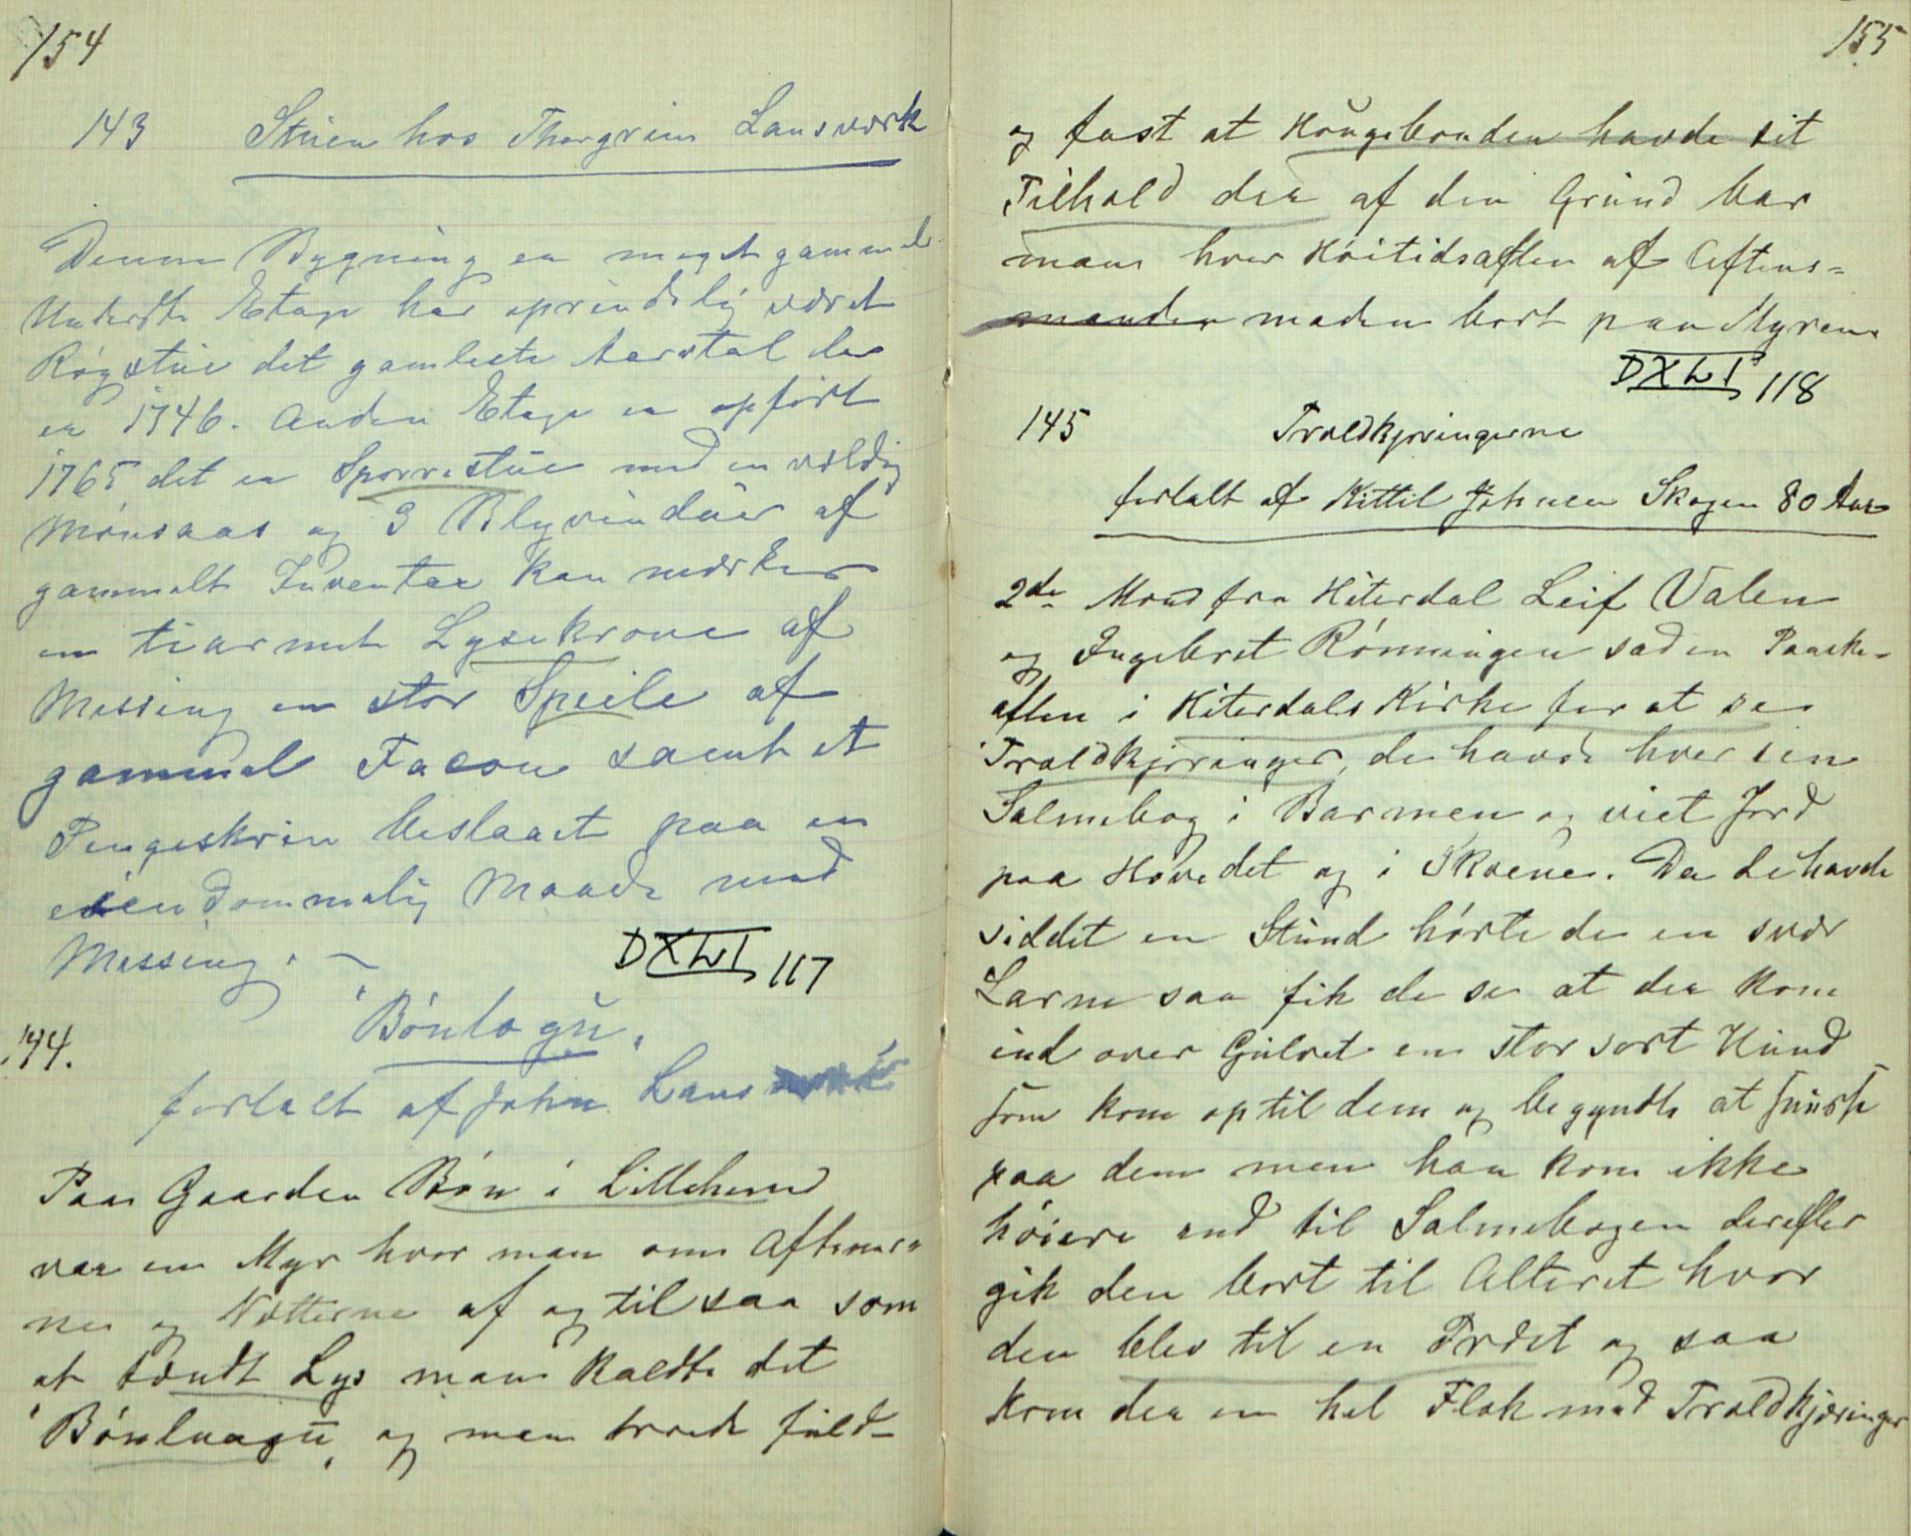 154
143 Stuen hos Thorgrim Lansværk
Denne Bygning er meget gammel
Underste Etage har oprindelig været
Røgstue det gamleste Aarstal der
er 1746. Anden Etage er opført
1765 det er Sperrestue med en vældig
Mønsaas og 3 Blyvinduer af
gammelt Inventar kan mærkes
en tiarmet Lysekrone af
Messing en stor Speile af
gammel Facon samt et
Pengeskrin beslaaet paa en
eiendommelig Maade med
Messing. –
DXLI 117
144. "Bønlogu"
fortalt af John Lans
Paa Gaarden Bøn i Lilleherred
var en Myr hvor man om Aftener=
ne og Nætterne af og til saa som
et tændt Lys man kaldte det
"Bønluagu" og man troede fuld-
155
og fast at Haugebonden havde sit
Tilhold der af den Grund bar
man hver Høitidsaften af Aftens=
manden maden bort paa Myren.
DXLI 118
145 Troldkjæringerne
fortalt af Kittil Johnsen Skogen 80 Aar
2de Mænd fra Hiterdal Leif Valen
og Ingebret Rønningen sad en Paaske-
aften i Hiterdals Kirke for at se
Troldkjæringer, de havde hver sin
Salmebog i Barmen og viet Jord
paa Hovedet og i Skoene. Da de havde
siddet en Stund hørte de en svær
Larm saa fik de se at der kom
ind over Gulvet en stor sort Hund
som kom op til dem og begyndte at snuse
paa dem men han kom ikke
høiere end til Salmebogen derefter
gik den bort til Alteret hvor
den blev til en Præst og saa
kom der en hel Flok med Troldkjæringer